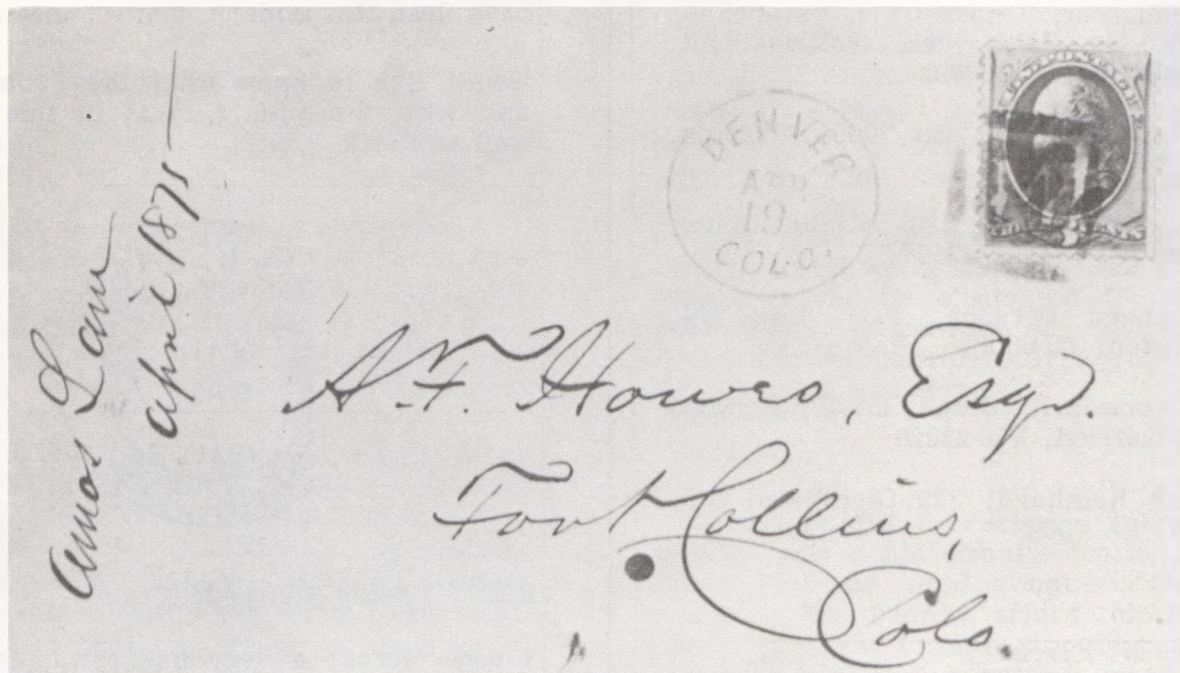 Amos Law
April 1875
DENVER
APR
19
COLO.
A. F. Howes, Esq.
Fort Collins,
Colo.